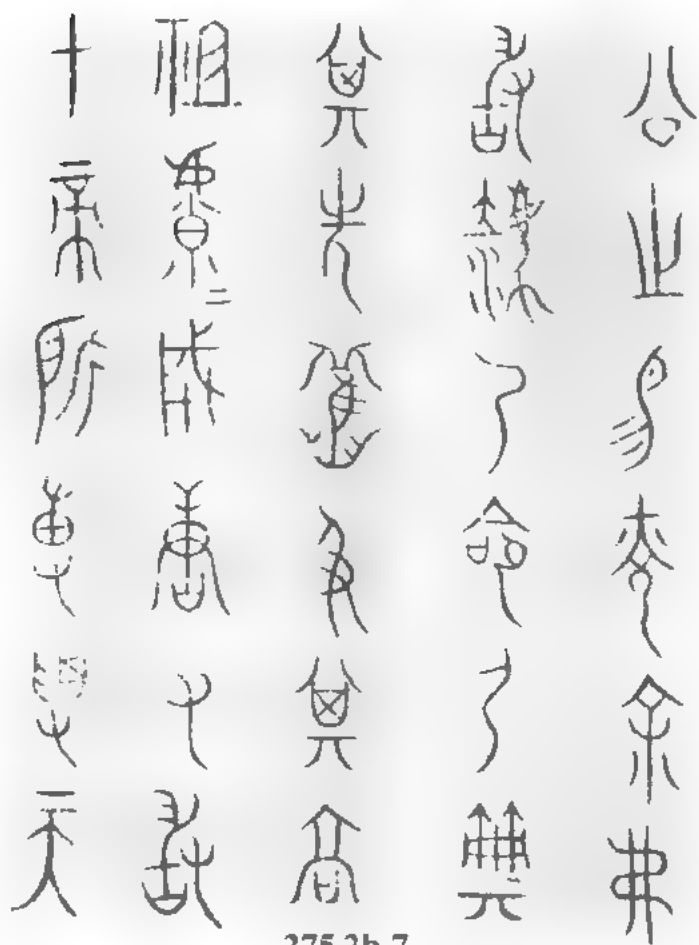 公之易光余弗
敢灋乃命尸典
其先舊及其高
祖虩=成唐又敢
才帝所尃受天
275.2b-7